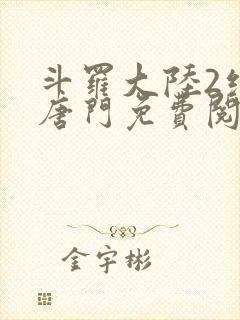 斗羅大陸2
唐門免費閱
金宇彬